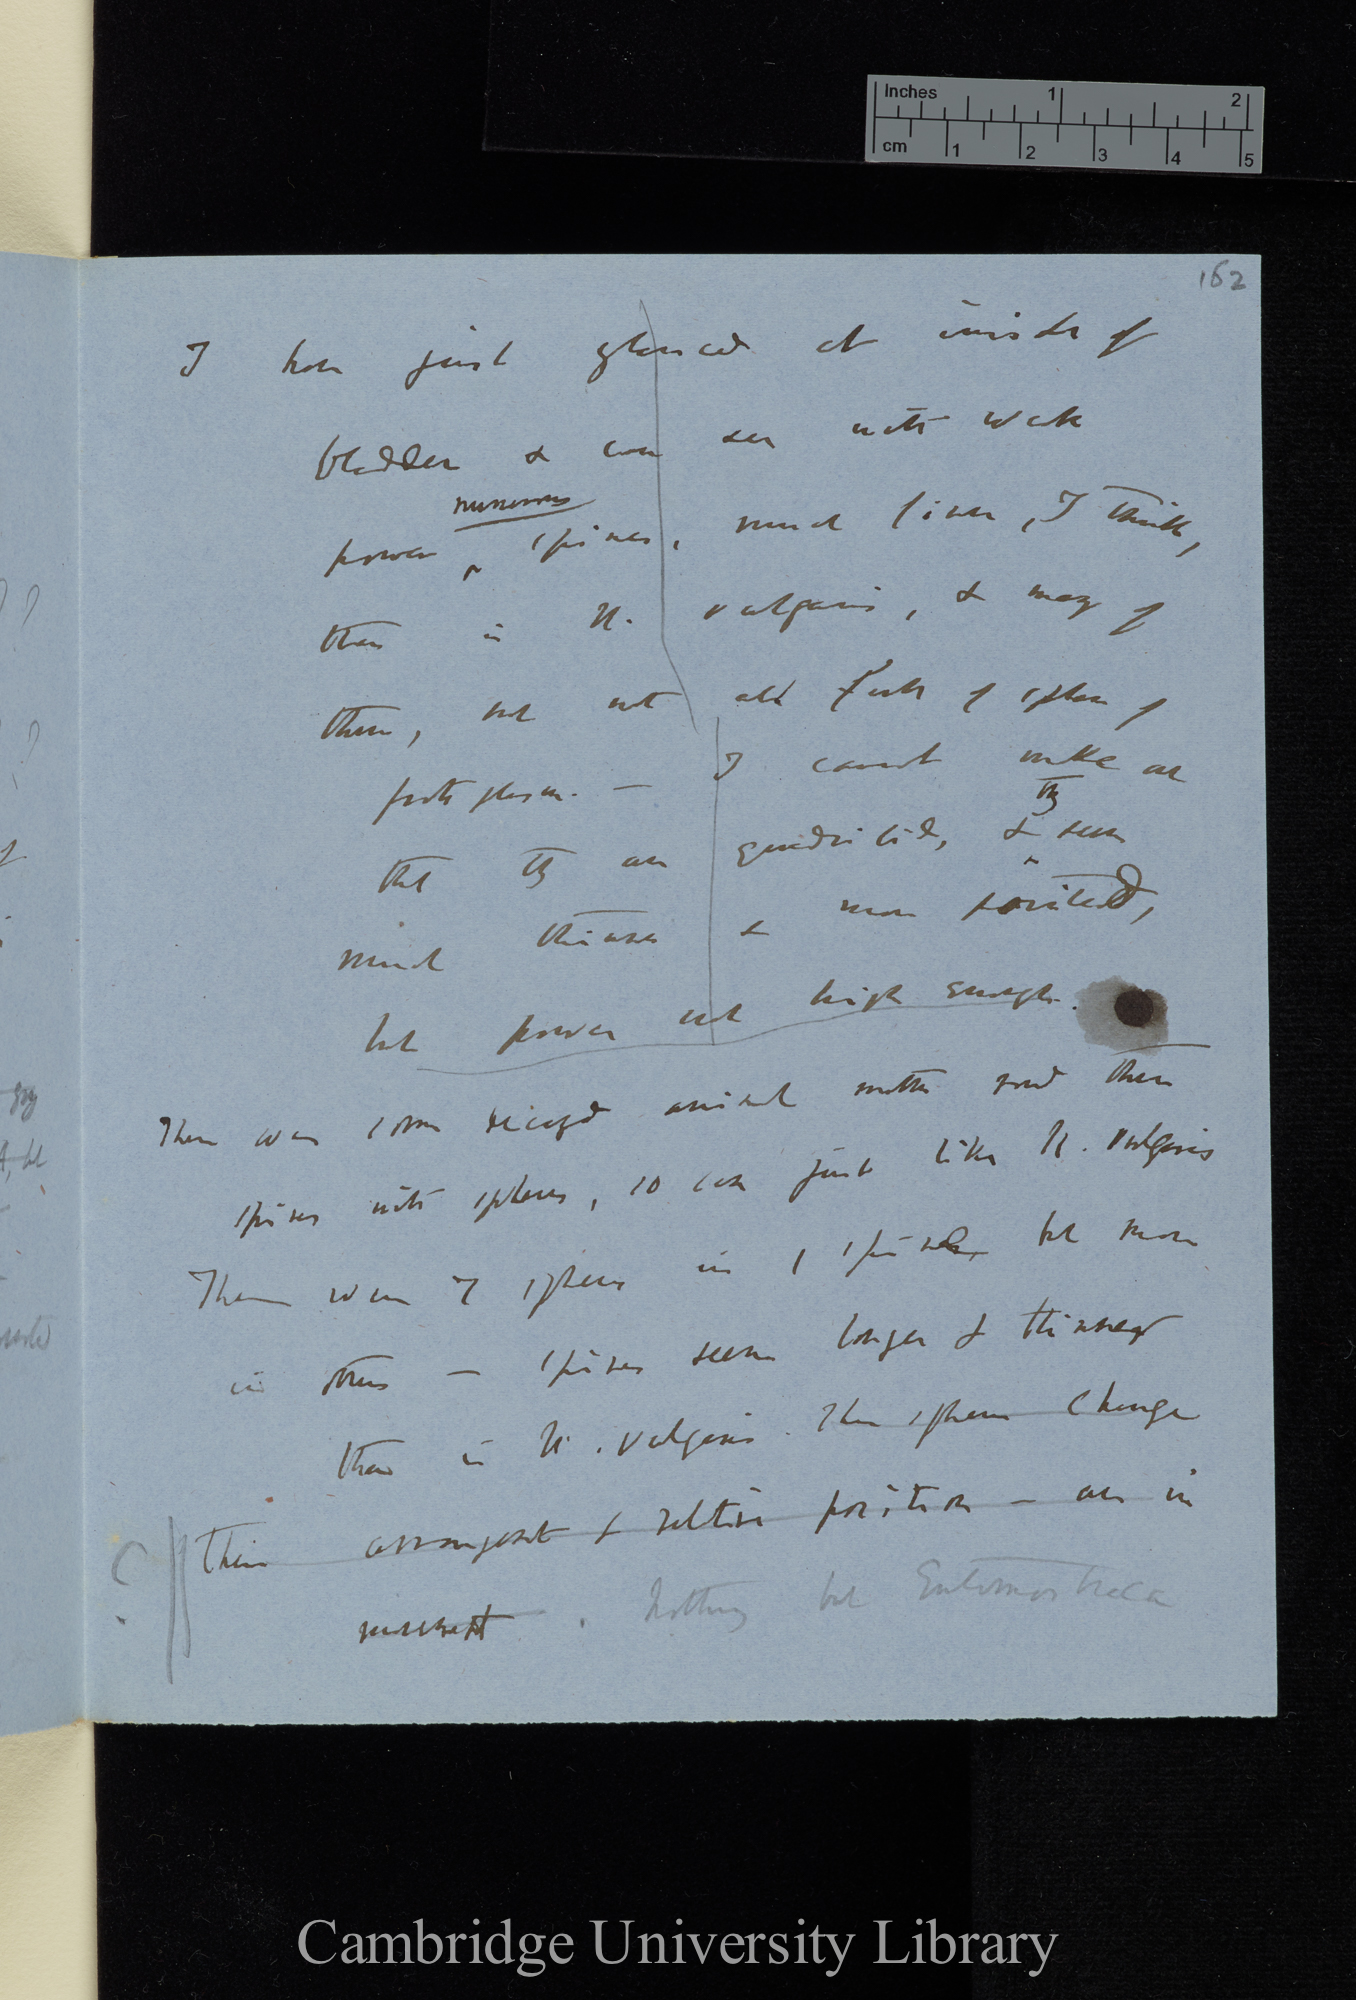 Inches 1 2
cm 1 2 3 4 5
162
I have just glanced at inside of
bladder & can see with weak
numerous
power ^ spines, much finer, I think,
than in U. vulgaris, & many of
them, but not all full of spheres of
protoplasm. — I cannot make out
they
that they are quadrifid, & ^ seem
much thinner & more pointed,
but power not high enough.
There was some decayed animal matter round these
spines with spheres, so case just like U. vulgaris
There were 7 spheres in 1 spine but more
in others — spines seem longer & thinner
than in U. vulgaris. The spheres change
their arrangement & relative position — are in
movement. Nothing but Entomostraca
?
Cambridge University Library